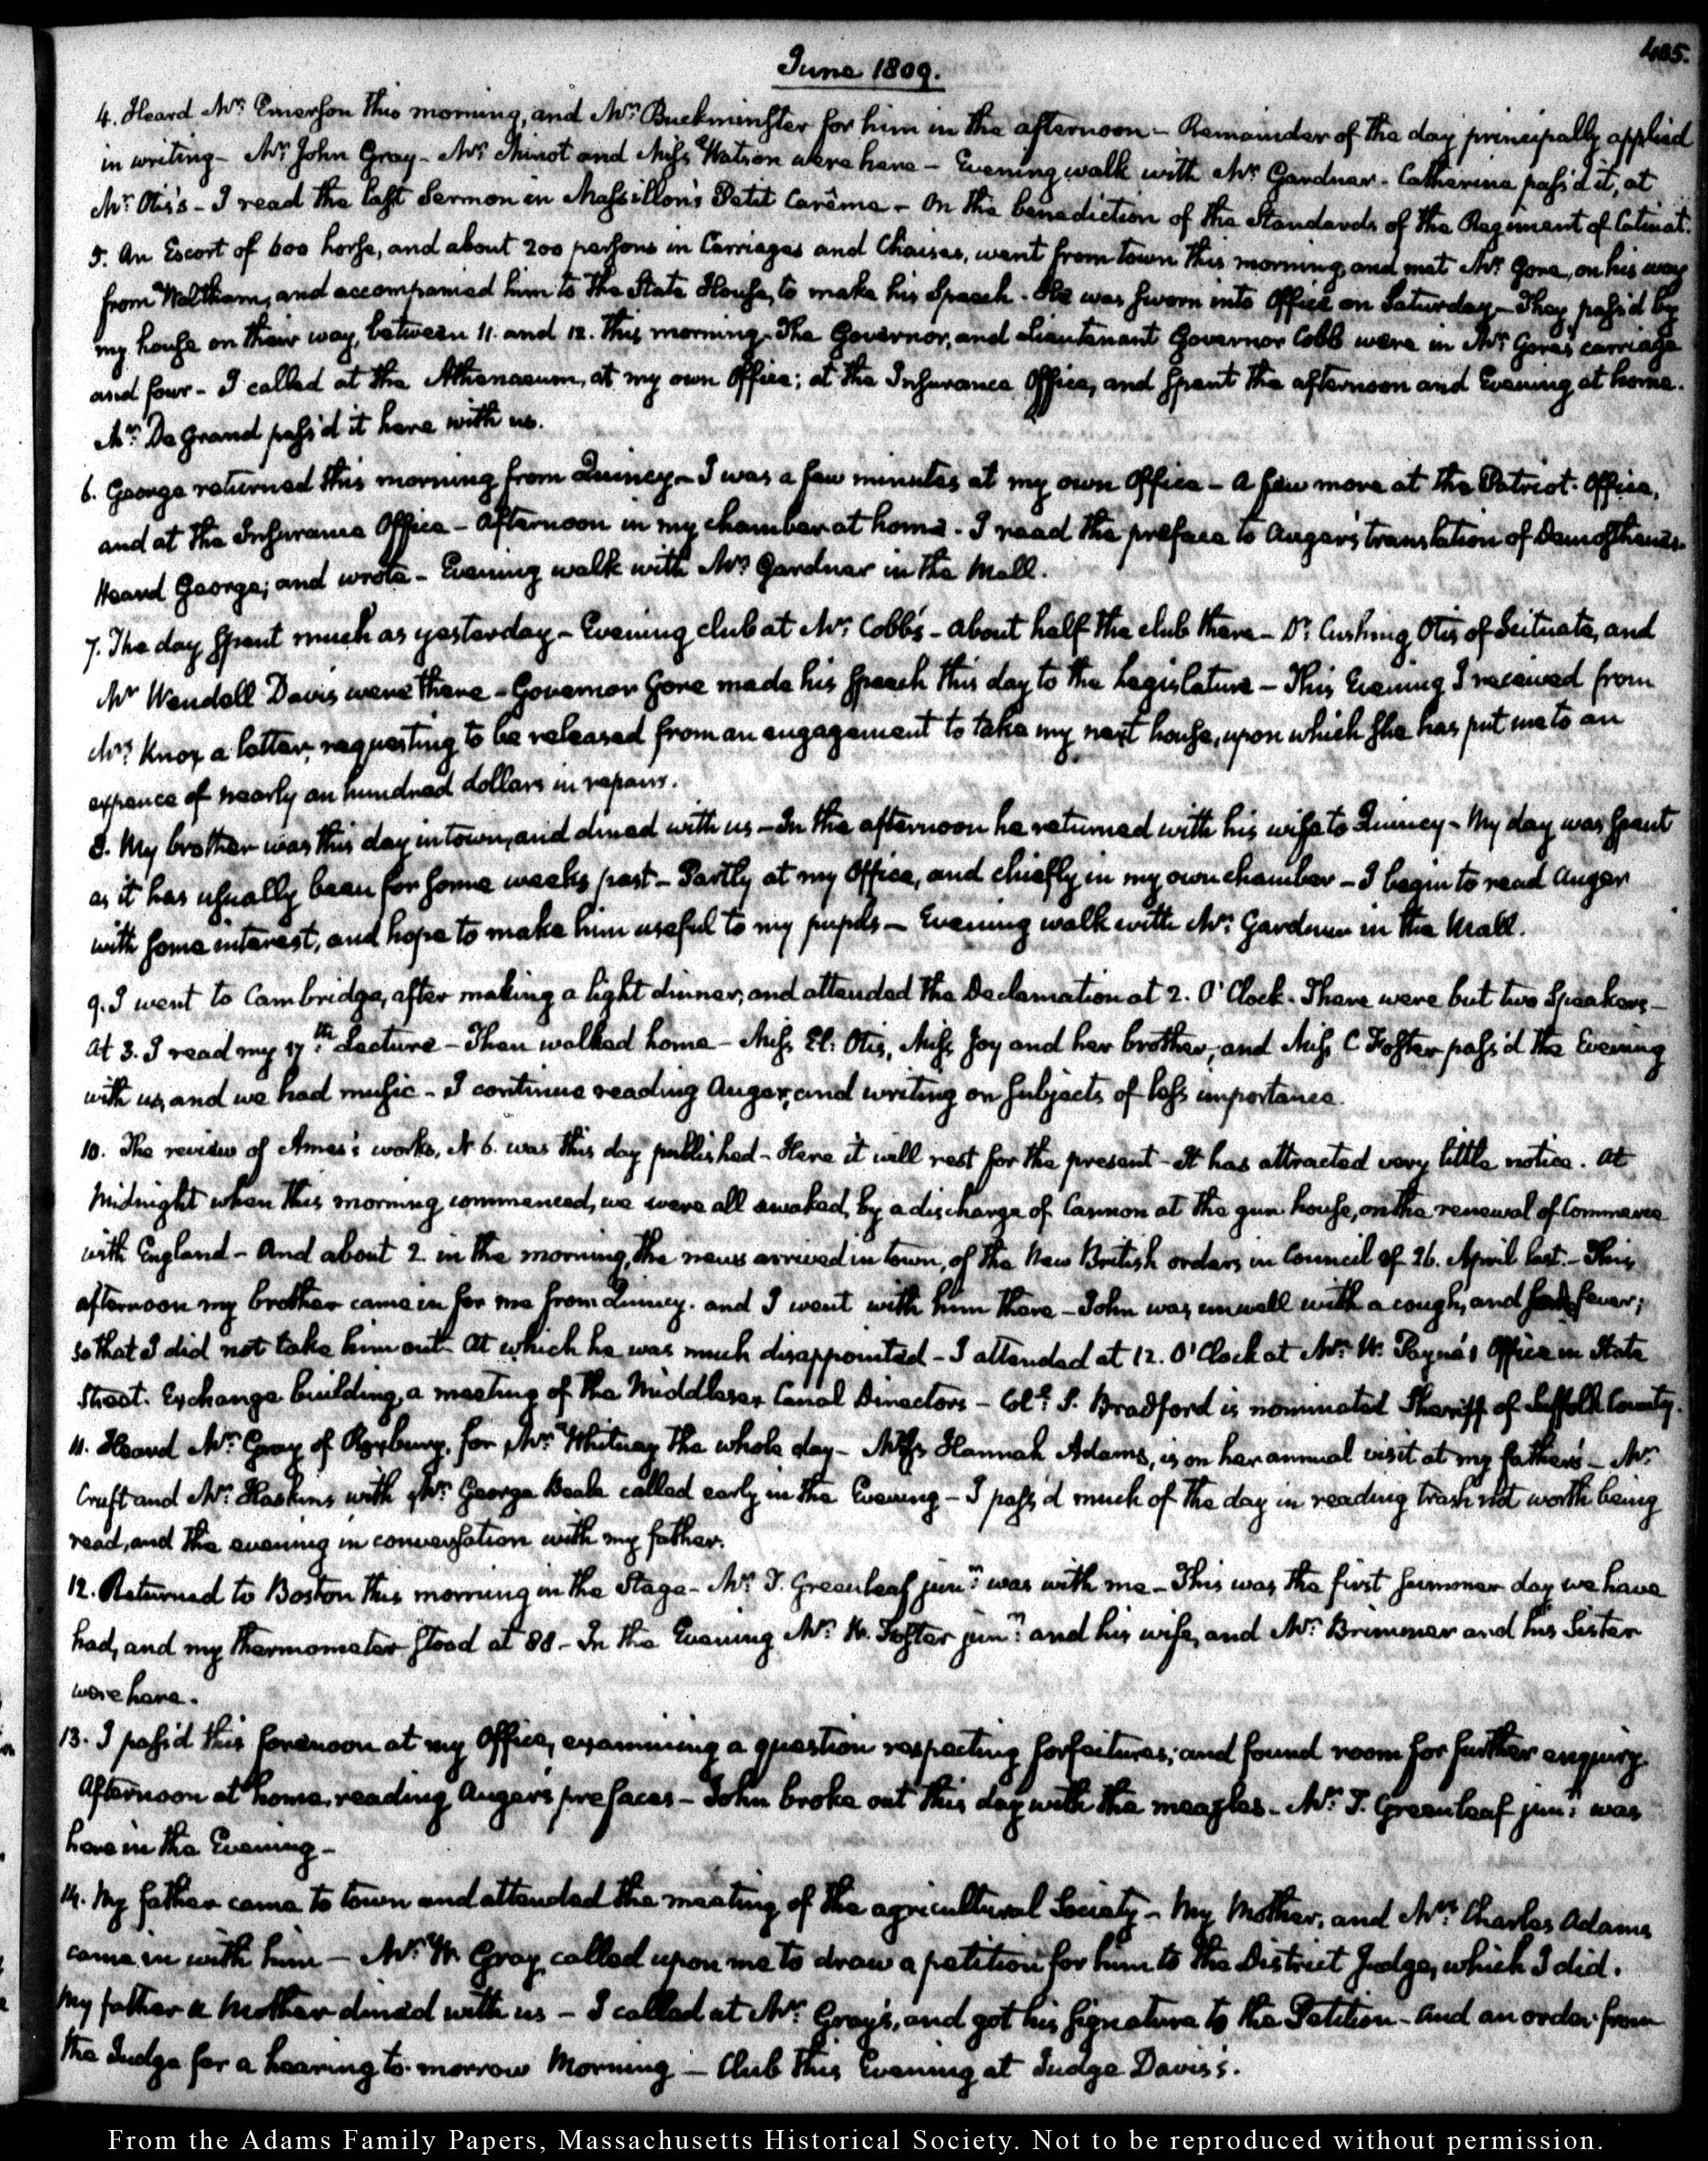 405.
June 1809.
4. Heard Mr: Emerson this morning, and Mr: Buckminster for him in the afternoon — Remainder of the day principally applied
in writing — Mr John Gray — Mr: Minot and Miss Watson were here — Evening walk with Mr: Gardner. Catherine pass'd it, at
Mr: Otis's — I read the last Sermon in Massillon's Petit Carême — On the benediction of the Standards of the Regiment of Catinat.
5. An Escort of 600 horse, and about 200 persons in Carriages and Chaises, went from town this morning, and met Mr: Gore, on his way
from Waltham, and accompanied him to the State House, to make his Speech. He was sworn into Office on Saturday — They pass'd by
my house on their way, between 11. and 12. this morning. The Governor, and Lieutenant Governor Cobb were in Mr: Gore's carriage
and four — I called at the Athenaeum, at my own Office; at the Insurance Office, and spent the afternoon and Evening at home.
Mr: De Grand pass'd it here with us.
6. George returned this morning from Quincy — I was a few minutes at my own Office — A few more at the Patriot-Office,
and at the Insurance Office — Afternoon in my chamber at home. I read the preface to Auger's translation of Demosthenes.
Heard George; and wrote — Evening walk with Mr: Gardner in the Mall.
7. The day spent much as yesterday — Evening club at Mr: Cobb's — about half the club there — Dr: Cushing Otis of Scituate, and
Mr Wendell Davis were there — Governor Gore made his speech this day to the Legislature — This Evening I received from
Mrs: Knox a letter, requesting to be released from an engagement to take my next house, upon which she has put me to an
expence of nearly an hundred dollars in repairs.
8. My brother was this day in town, and dined with us — In the afternoon he returned with his wife to Quincy — My day was spent
as it has usually been for some weeks past — Partly at my Office, and chiefly in my own chamber — I begin to read Auger
with some interest, and hope to make him useful to my pupils — Evening walk with Mr: Gardner in the Mall.
9. I went to Cambridge, after making a light dinner; and attended the Declamation at 2. O'Clock. There were but two Speakers —
At 3. I read my 17th: Lecture — Then walked home — Miss El: Otis, Miss Joy and her brother, and Miss C Foster pass'd the Evening
with us, and we had music — I continue reading Auger, and writing on subjects of less importance.
10. The review of Ames's works, N. 6. was this day published — Here it will rest for the present — It has attracted very little notice. At
Midnight when this morning commenced, we were all awaked, by a discharge of Cannon at the gun house, on the renewal of Commerce
with England — And about 2 in the morning, the news arrived in town, of the New British orders in Council of 26. April last. — This
afternoon my brother came in for me from Quincy. and I went with him there — John was unwell with a cough, and fever;
so that I did not take him out — At which he was much disappointed — I attended at 12. O'Clock at Mr: W. Payne's Office in State
Street. Exchange building, a meeting of the Middlesex Canal Directors — Coll: S. Bradford is nominated Sheriff of Suffolk County.
11. Heard Mr: Gray of Roxbury, for Mr: Whitney the whole day — Miss Hannah Adams, is on her annual visit at my father's — Mr:
Cruft and Mr: Haskins with Mr: George Beale called early in the Evening — I pass'd much of the day in reading trash not worth being
read, and the evening in conversation with my father.
12. Returned to Boston this morning in the Stage — Mr: T. Greenleaf junr: was with me — This was the first summer day we have
had, and my thermometer stood at 88 — In the Evening Mr: W. Foster junr: and his wife, and Mr: Brimmer and his Sister
were here.
13. I pass'd this forenoon at my Office, examining a question respecting forfeitures; and found room for further enquiry.
Afternoon at home, reading Auger's prefaces — John broke out this day with the meazles. Mr: T. Greenleaf junr: was
here in the Evening —
14. My father came to town and attended the meeting of the agricultural Society — My Mother, and Mrs: Charles Adams
came in with him — Mr: W. Gray called upon me to draw a petition for him to the District Judge, which I did.
My father & Mother dined with us — I called at Mr: Gray's, and got his signature to the Petition — and an order from
the Judge for a hearing to-morrow Morning — Club this Evening at Judge Davis's.
From the Adams Family Papers, Massachusetts Historical Society. Not to be reproduced without permission.